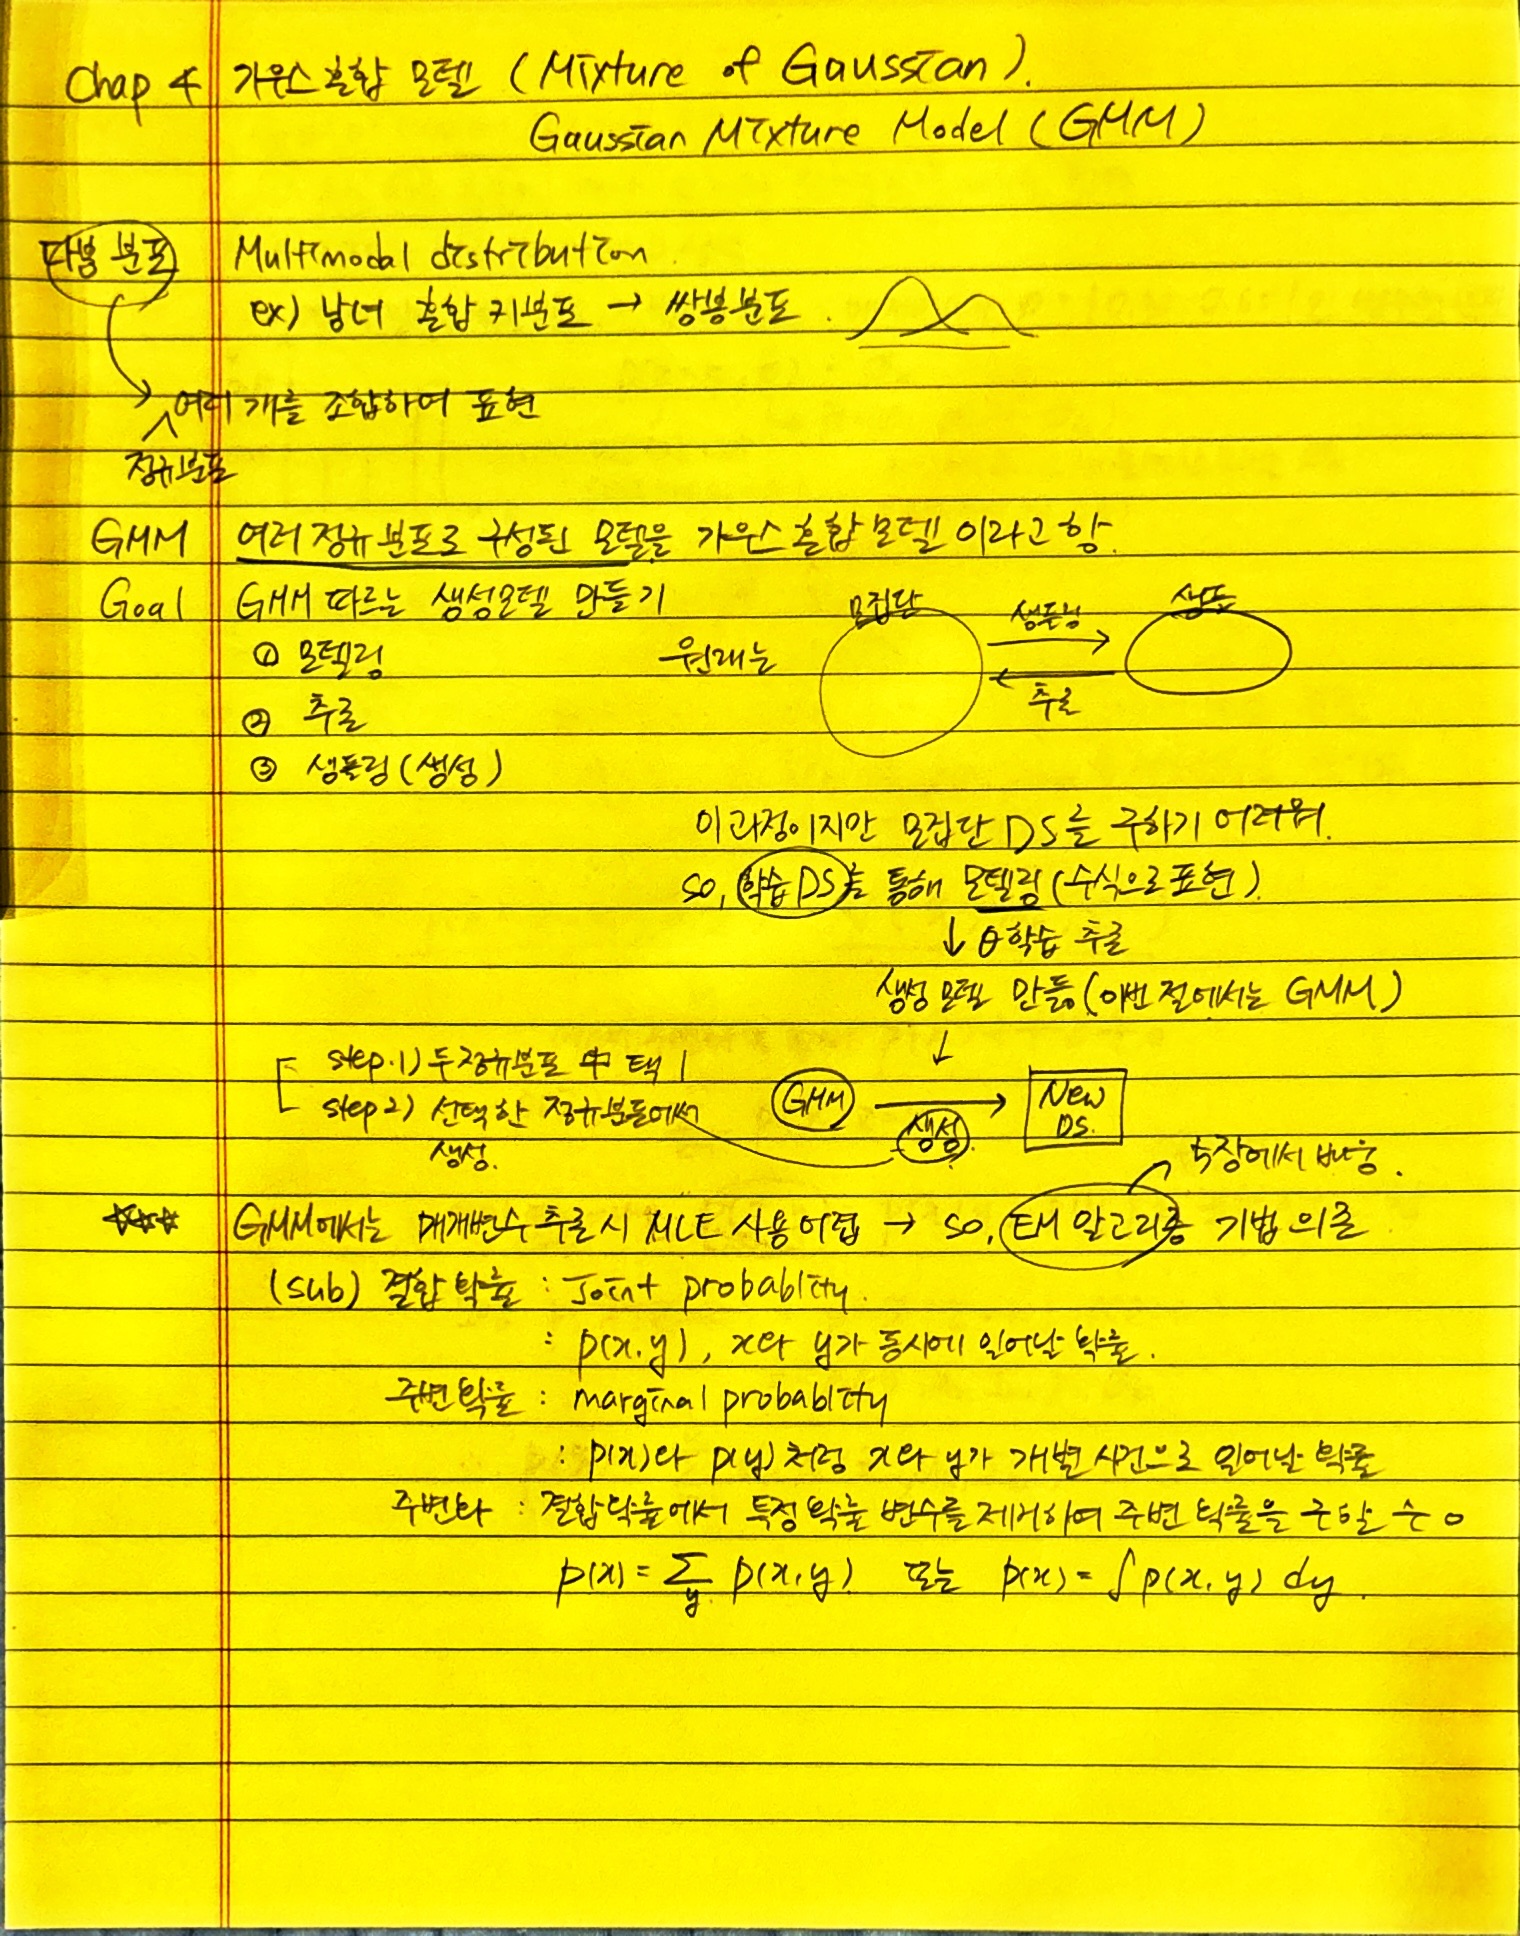 Chap 4 가우스 혼합 모델 (Mixture of Gaussian).
Gaussian Mixture Model (GMM)
다봉 분포 Multimodal distribution.
ex) 남녀 혼합 키분포 → 쌍봉분포.
여러 개를 조합하여 표현
정규분포
GMM 여러 정규분포로 구성된 모델을 가우스 혼합 모델 이라고 함.
Goal GMM 따르는 생성모델 만들기
① 모델링
② 추론
③ 샘플링(생성)
원래는 모집단 샘플링 샘플
추론
이 과정이지만 모집단 DS를 구하기 어려워.
so, 학습 DS를 통해 모델링 (수식으로 표현).
↓ θ학습 추론
생성 모델 만듦 (이번 절에서는 GMM)
↓
step.1) 두 정규분포 中 택 1
step 2) 선택한 정규분포에서
생성.
GMM → New DS.
생성
뒷장에서 배움.
☆☆☆ GMM에서는 매개변수 추론 시 MLE 사용 어렵 → so, EM 알고리즘 기법 의존
(sub) 결합 확률 : Joint probablity.
: p(x,y), x와 y가 동시에 일어날 확률.
주변 확률 : marginal probablity
: p(x)와 p(y)처럼 x와 y가 개별 사건으로 일어날 확률
주변화 : 결합확률에서 특정 확률 변수를 제거하여 주변 확률을 구할 수 o
p(x) = Σ_y p(x,y) 또는 p(x) = ∫ p(x,y) dy.